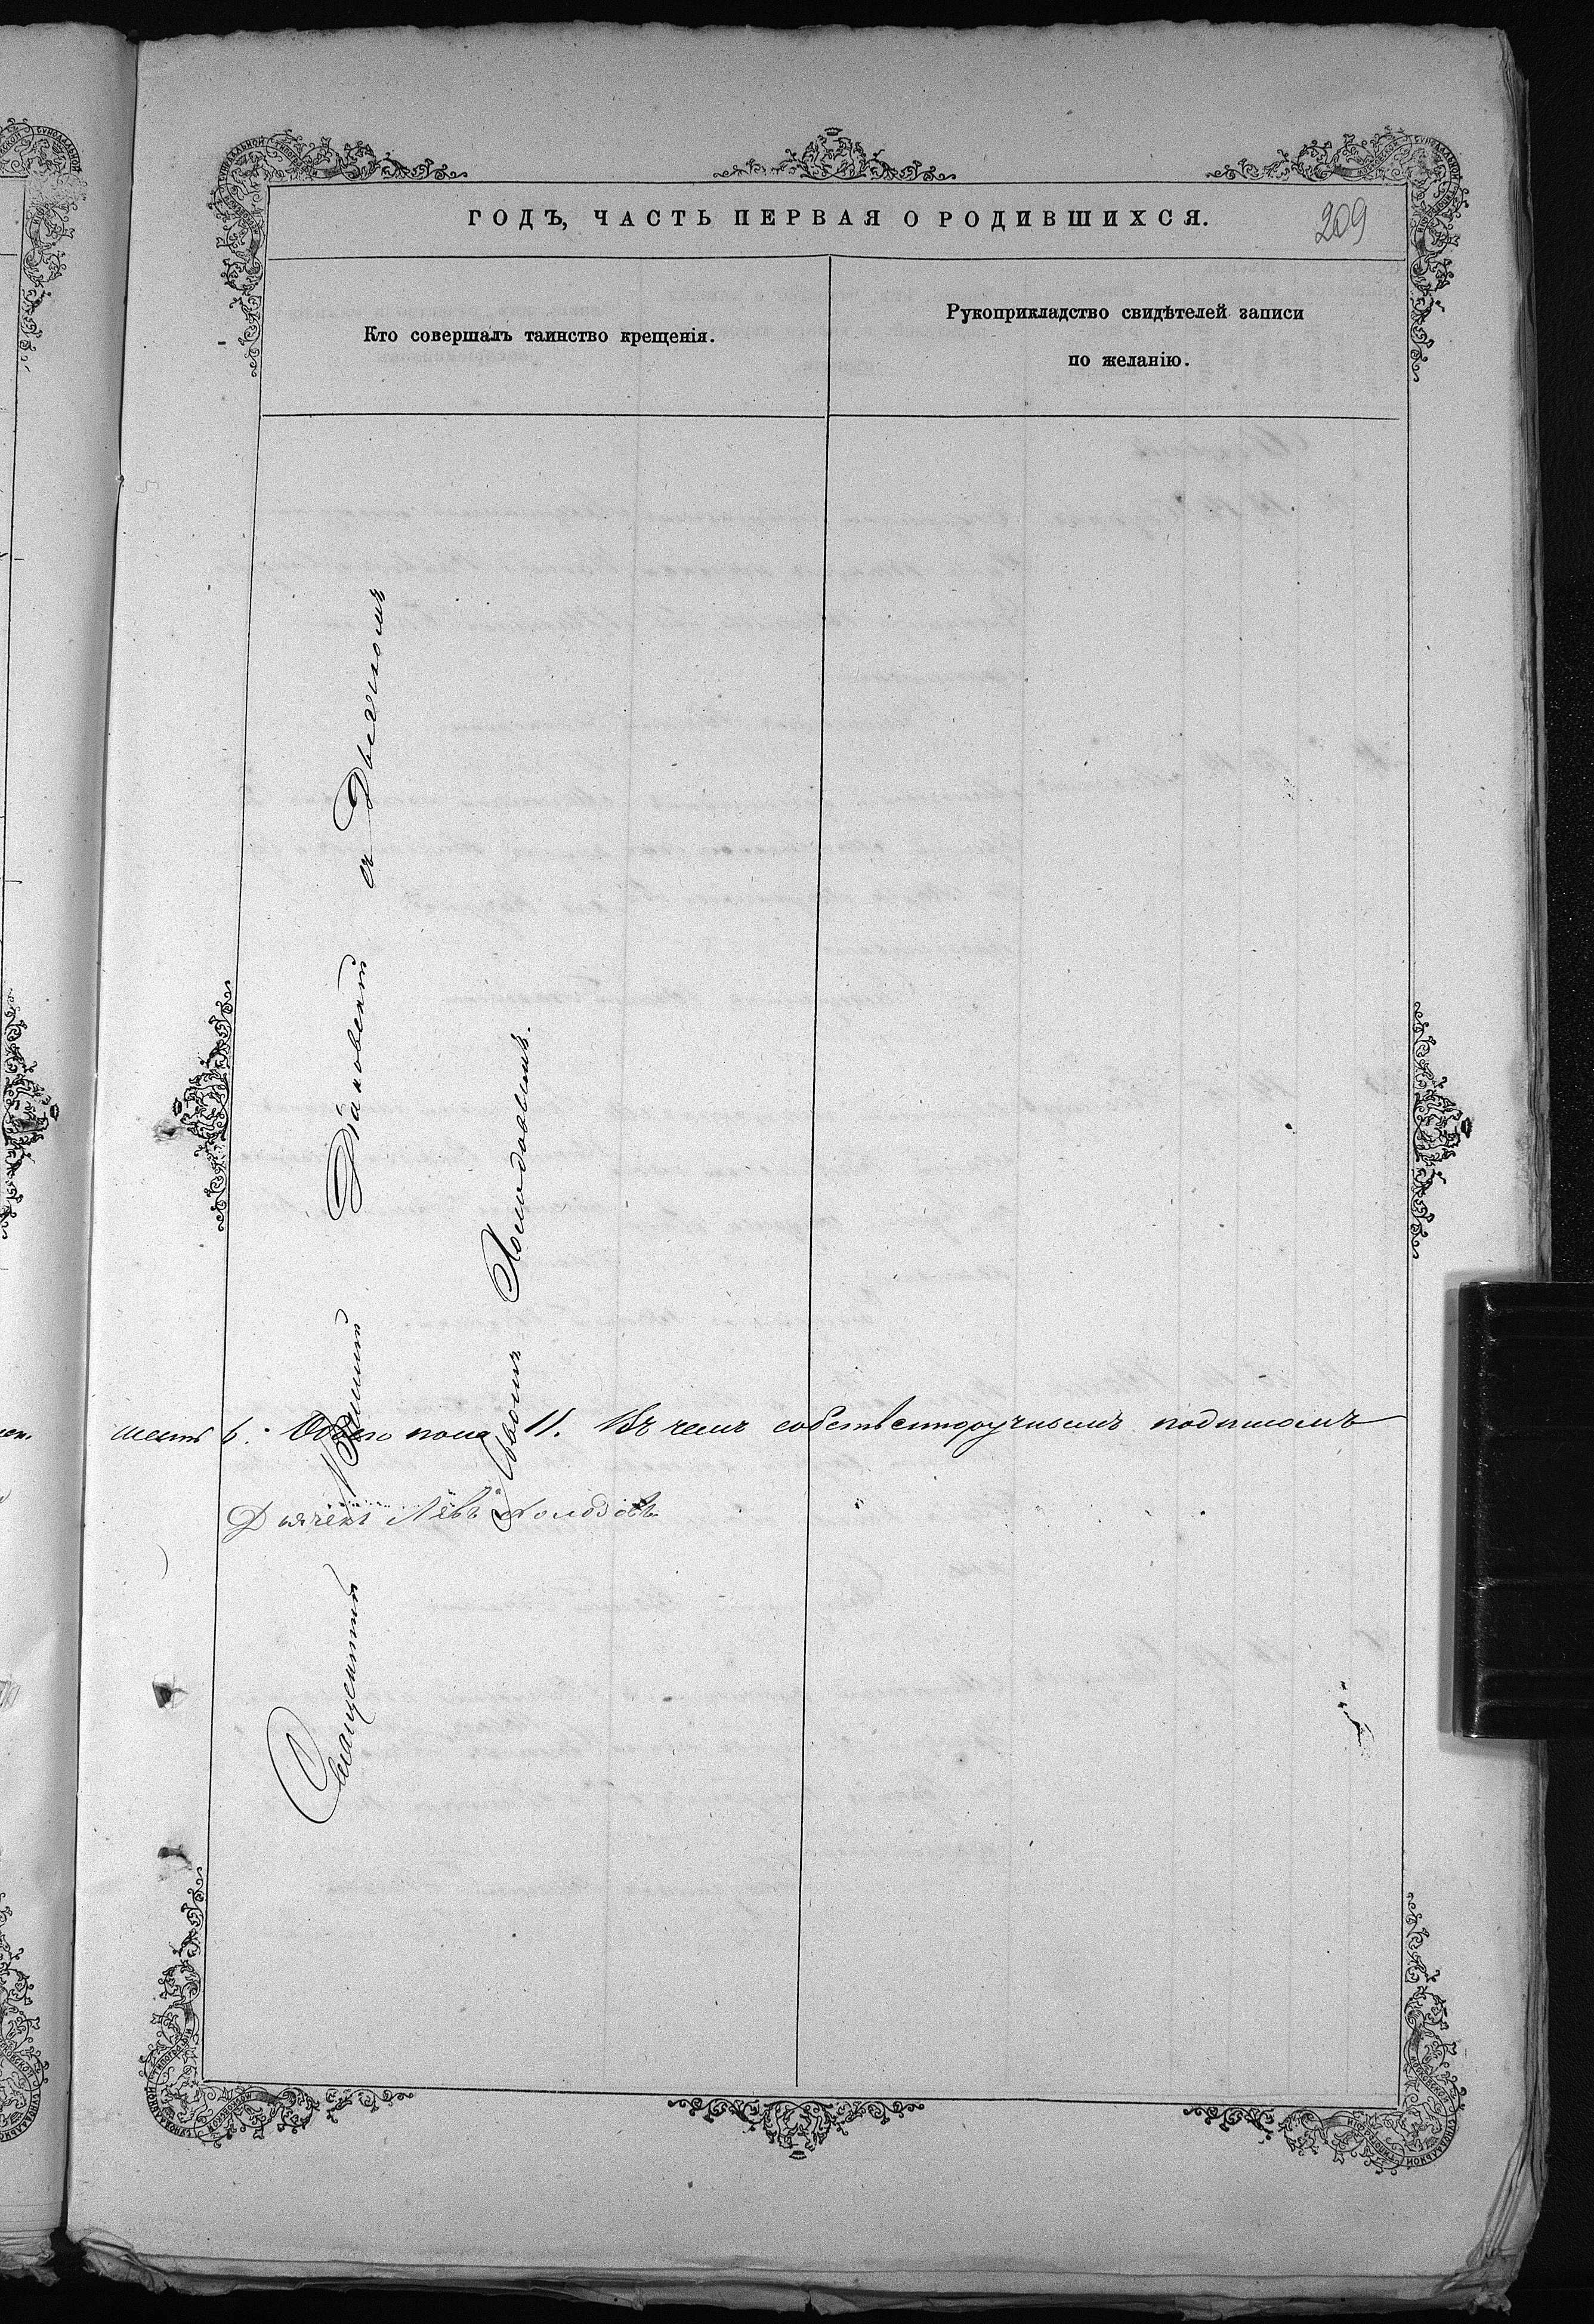 ГОДЪ, ЧАСТЬ ПЕРВАЯ О РОДИВШИХСЯ.
209
Кто совершалъ таинство крещенія.
Рукоприкладство свидѣтелей записи
по желанію.
Священникъ Диковскій съ Дьячкомъ
Львомъ Холодовымъ.
6. Обоего пола 11. Въ чемъ собственноручнымъ подписомъ
Дьячекъ Левъ Холодовъ